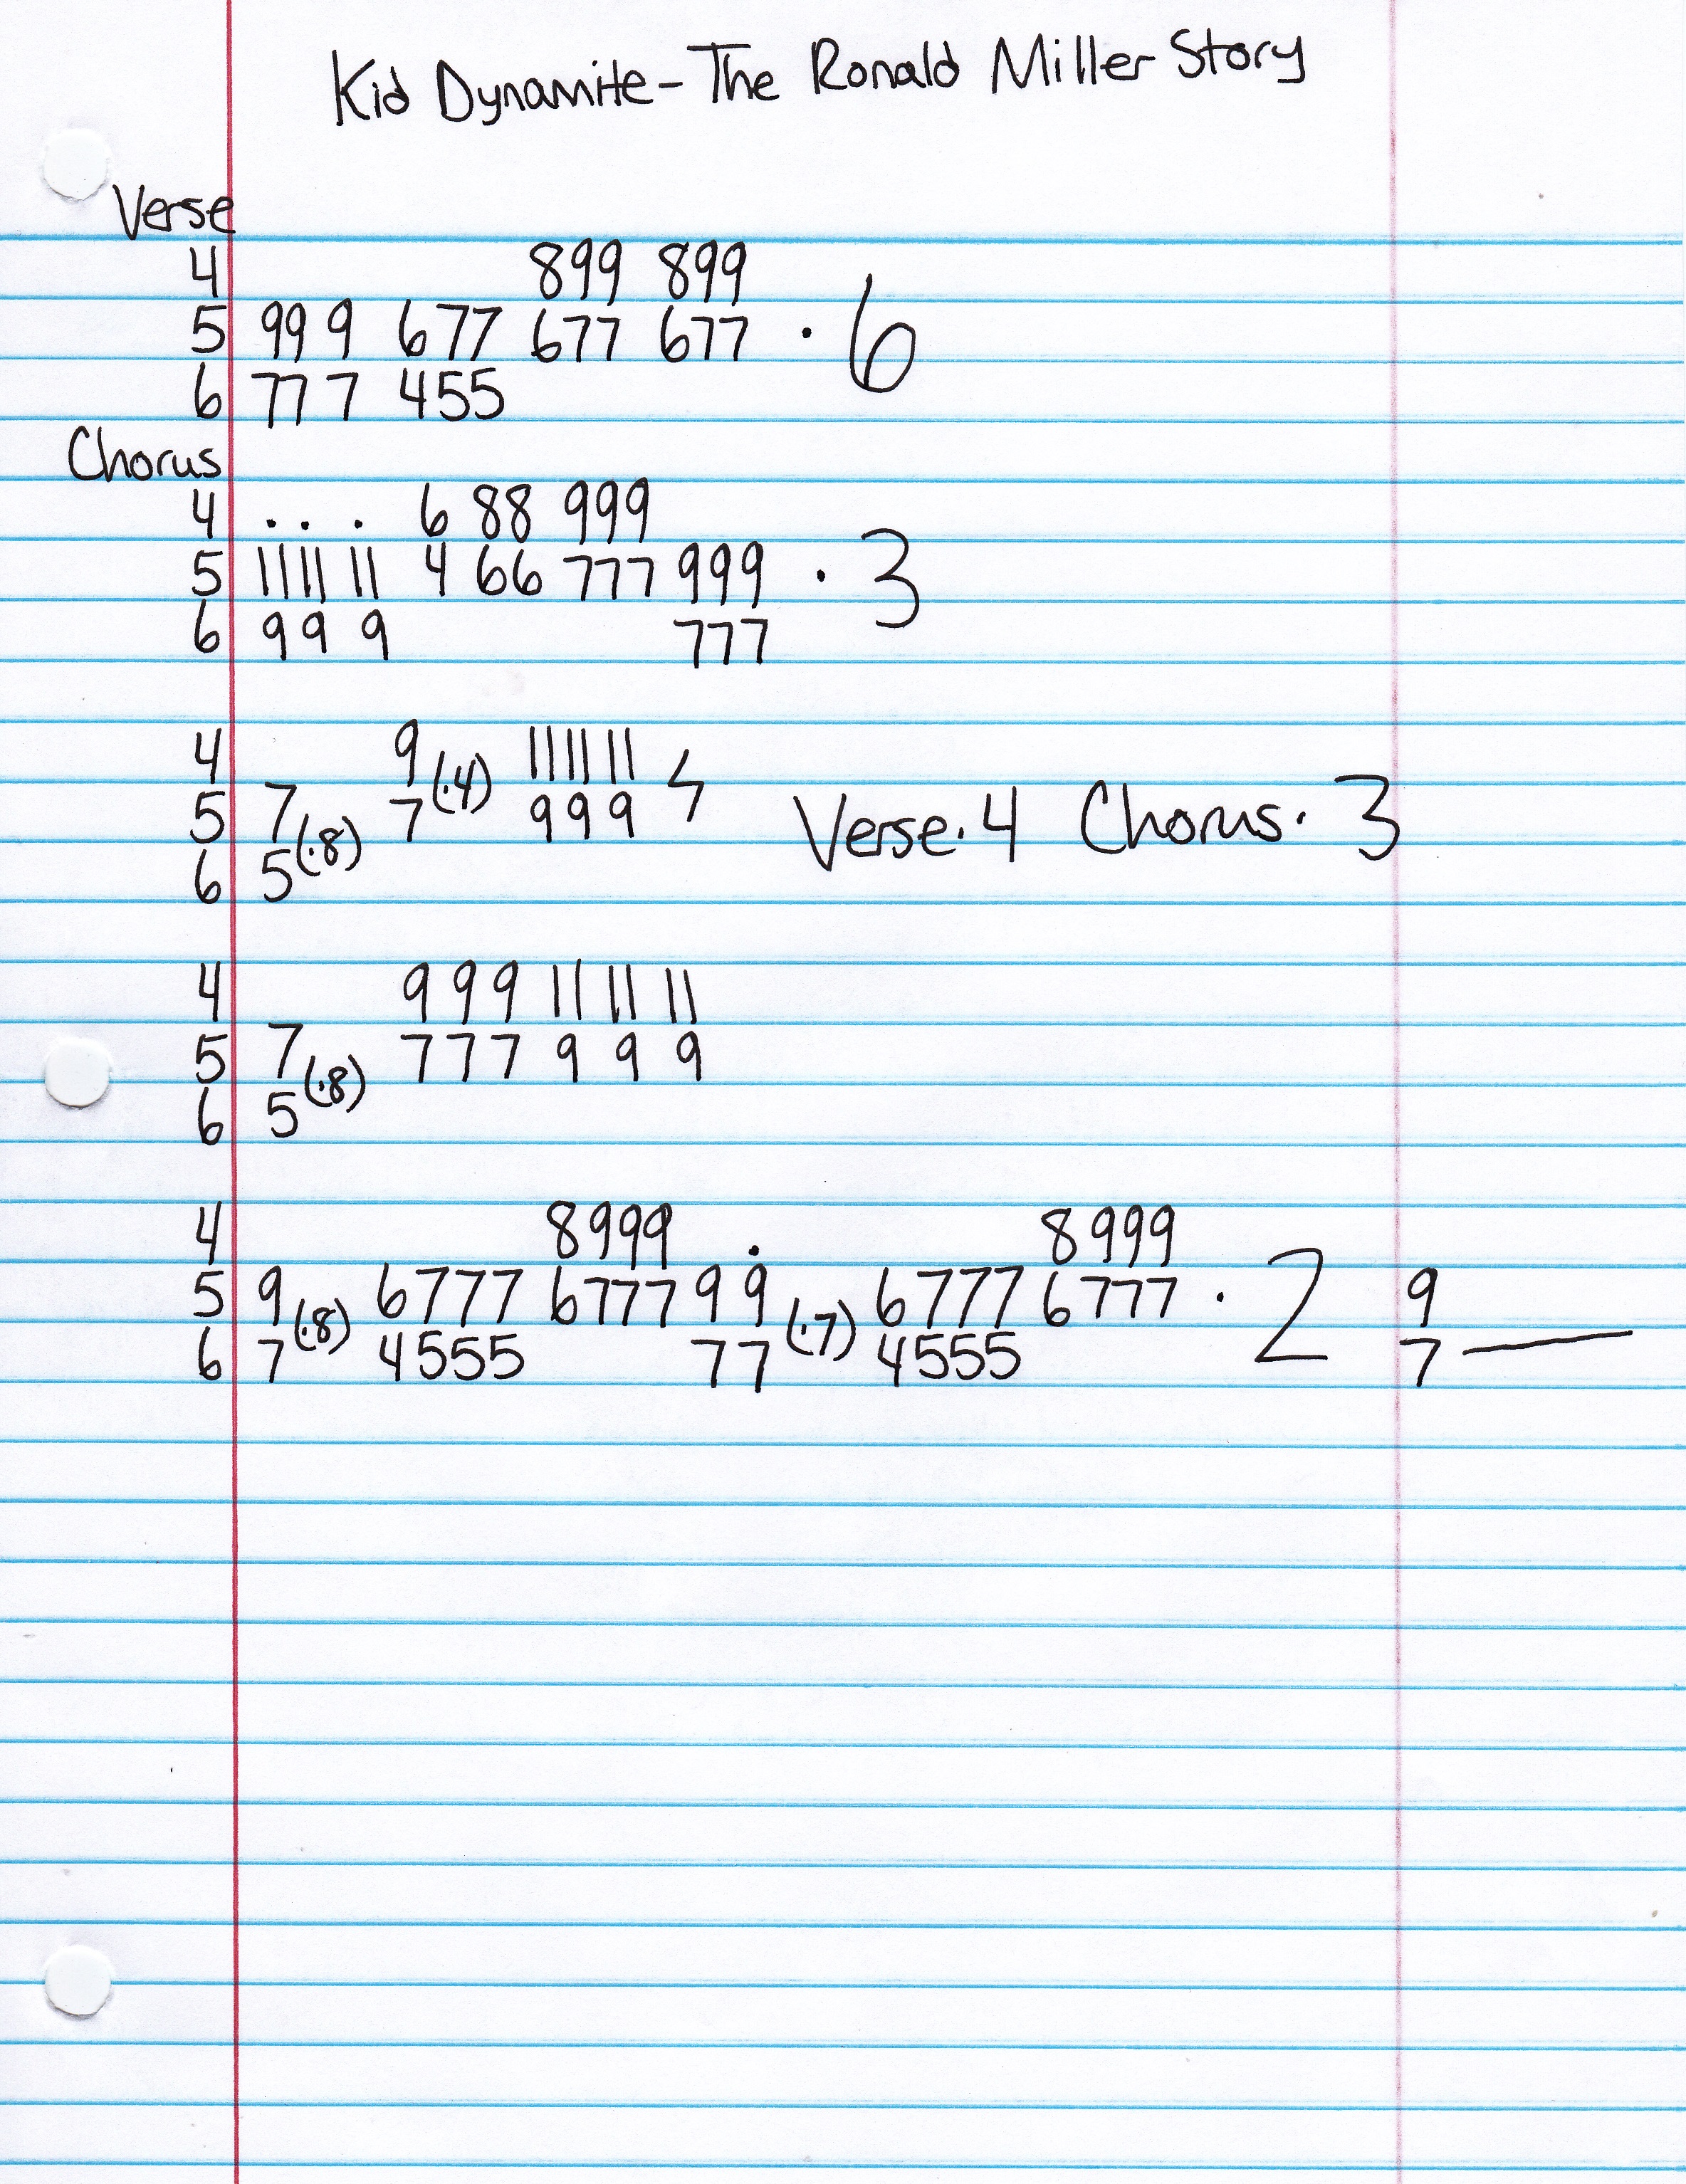 Kid Dynamite - The Ronald Miller Story
Verse
4 899 899
5 99 9 677 677 677 · 6
6 77 7 455
Chorus
4 . . . 6 88 999
5 11 11 11 4 66 777 999 · 3
6 9 9 9 777
4 9 (·4) 11 11 11
5 7 (·8) 7 9 9 9 Verse · 4 Chorus · 3
6 5
4 9 9 9 11 11 11
5 7 (·8) 7 7 7 9 9 9
6 5
4 8999 . 8999
5 9 (·8) 6777 6777 9 9 (·7) 6777 6777 · 2 9
6 7 4555 77 4555 7 —